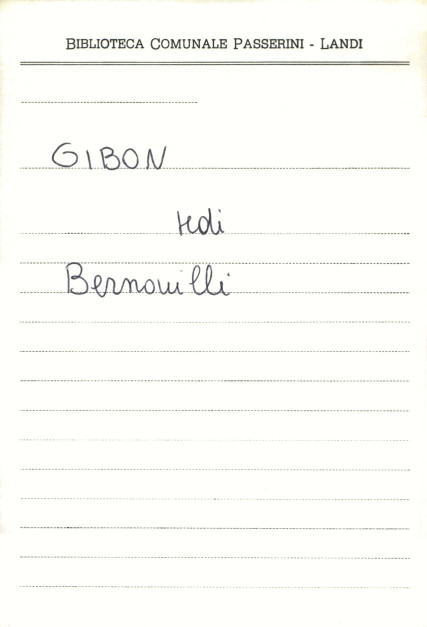 BIBLIOTECA COMUNALE PASSERINI - LANDI
GIBON
vedi
Bernouilli